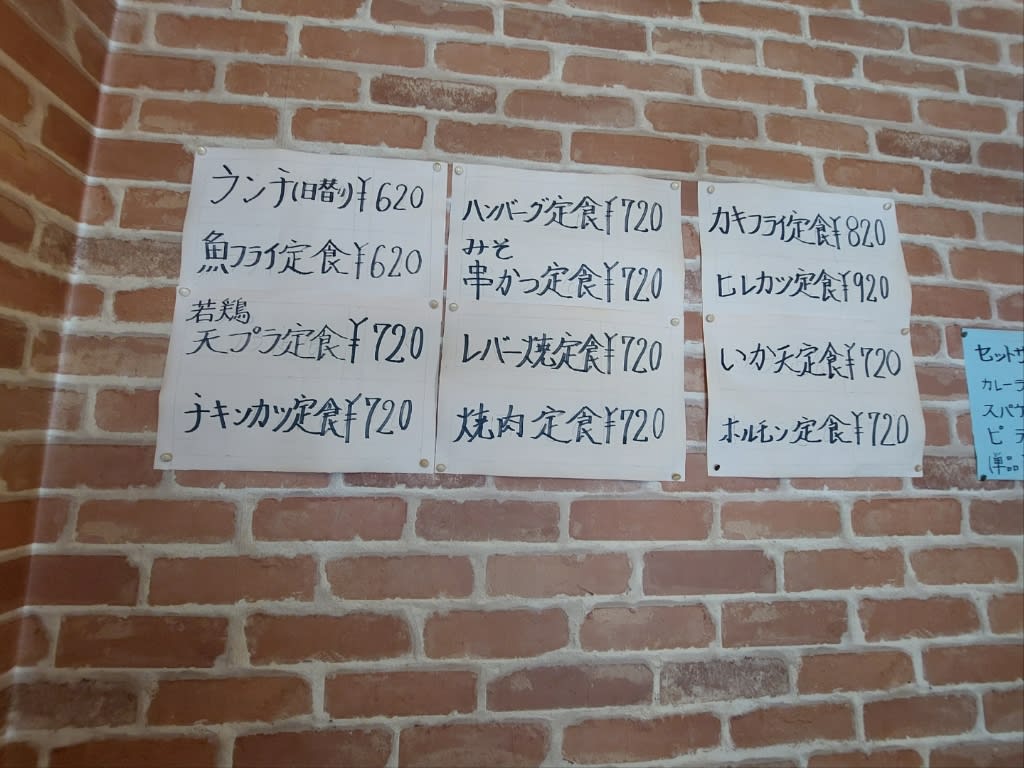 ウンチ(日替り)¥620
魚フライ定食¥620
若鶏
天プラ定食¥720
チキンカツ定食¥720
ハンバーグ定食¥720
みそ
串かつ定食¥720
レバー焼定食¥720
焼肉定食¥720
カキフライ定食¥820
ヒレカツ定食¥920
いか天定食¥720
ホルモン定食¥720
セットサ
カレーラ
スパゲ
ピラ
単品